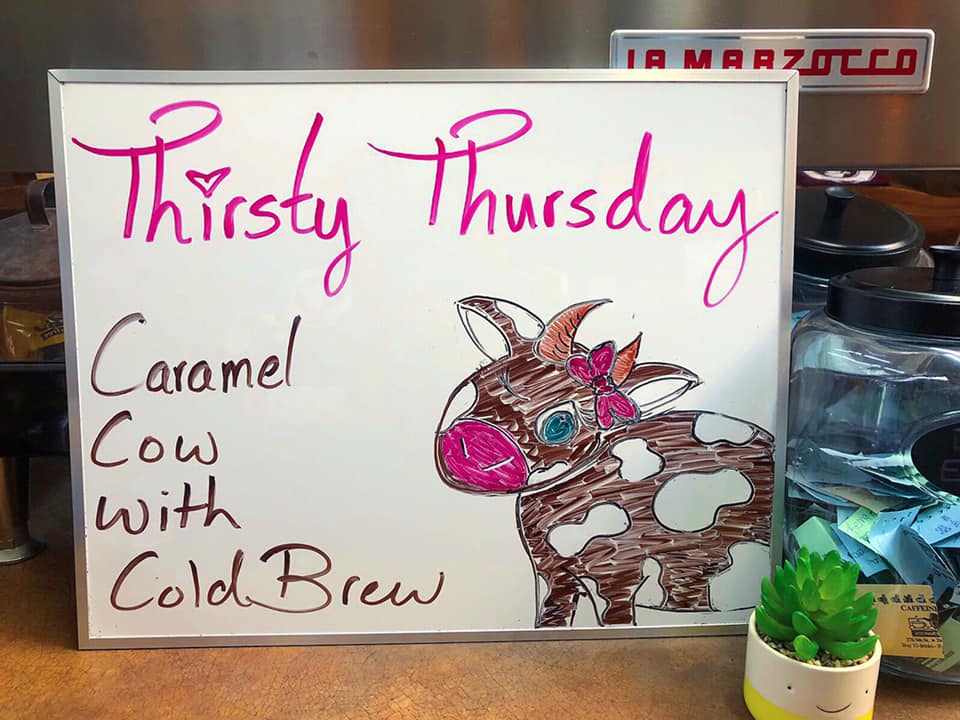 LA MARZOCCO
Thirsty Thursday
Caramel
Cow
with
Cold Brew